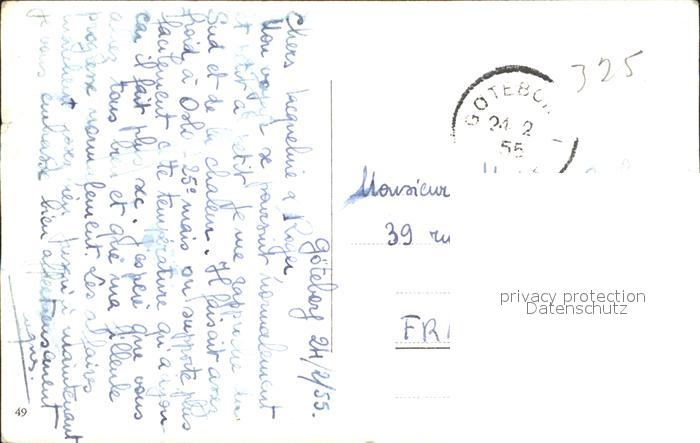 Göteborg 24/2/55.
Chers Jacqueline & Roger,
Mon voyage se poursuit normalement
et petit à petit je me rapproche du
Sud et de la chaleur. Il faisait assez
froid à Oslo -25° mais on supporte plus
facilement cette température qu'à Lyon
car il fait plus sec. J'espère que vous
allez tous bien et que ma filleule
progresse normalement. Les affaires
marchent assez bien jusqu'à maintenant
Je vous embrasse bien affectueusement
49
GÖTEBO
24 2
55
325
Monsieur
39 ru
FRA
privacy protection
Datenschutz